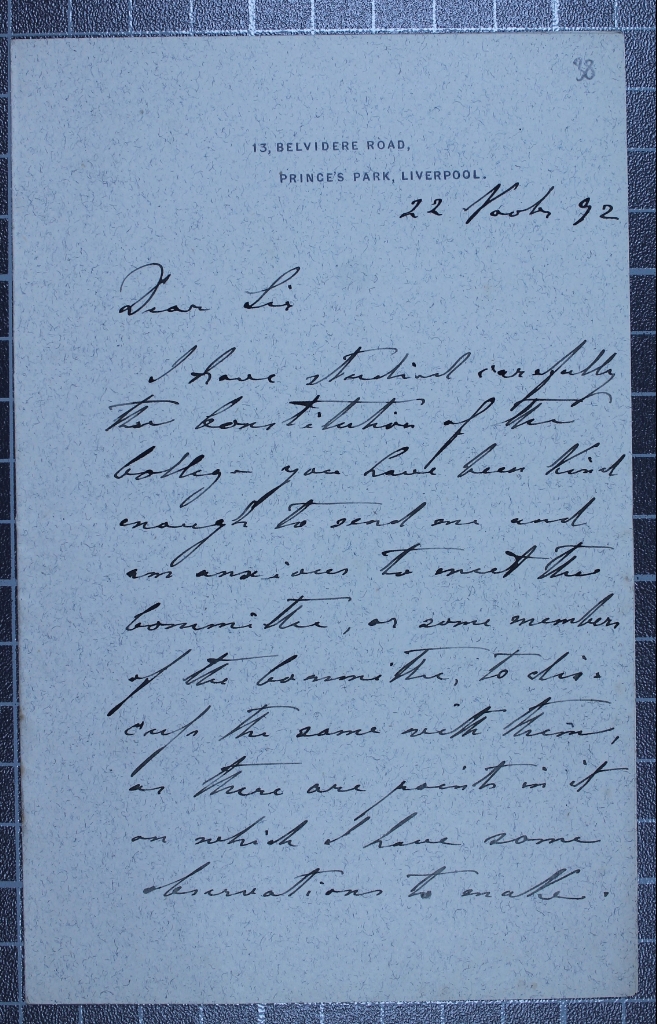 38
13, BELVIDERE ROAD,
PRINCE'S PARK, LIVERPOOL.
22 Novbr 92
Dear Sir
I have studied carefully
the Constitution of the
College you have been kind
enough to send me and
am anxious to meet the
Committee, or some members
of the Committee, to dis-
cuss the same with them,
as there are points in it
on which I have some
observations to make.